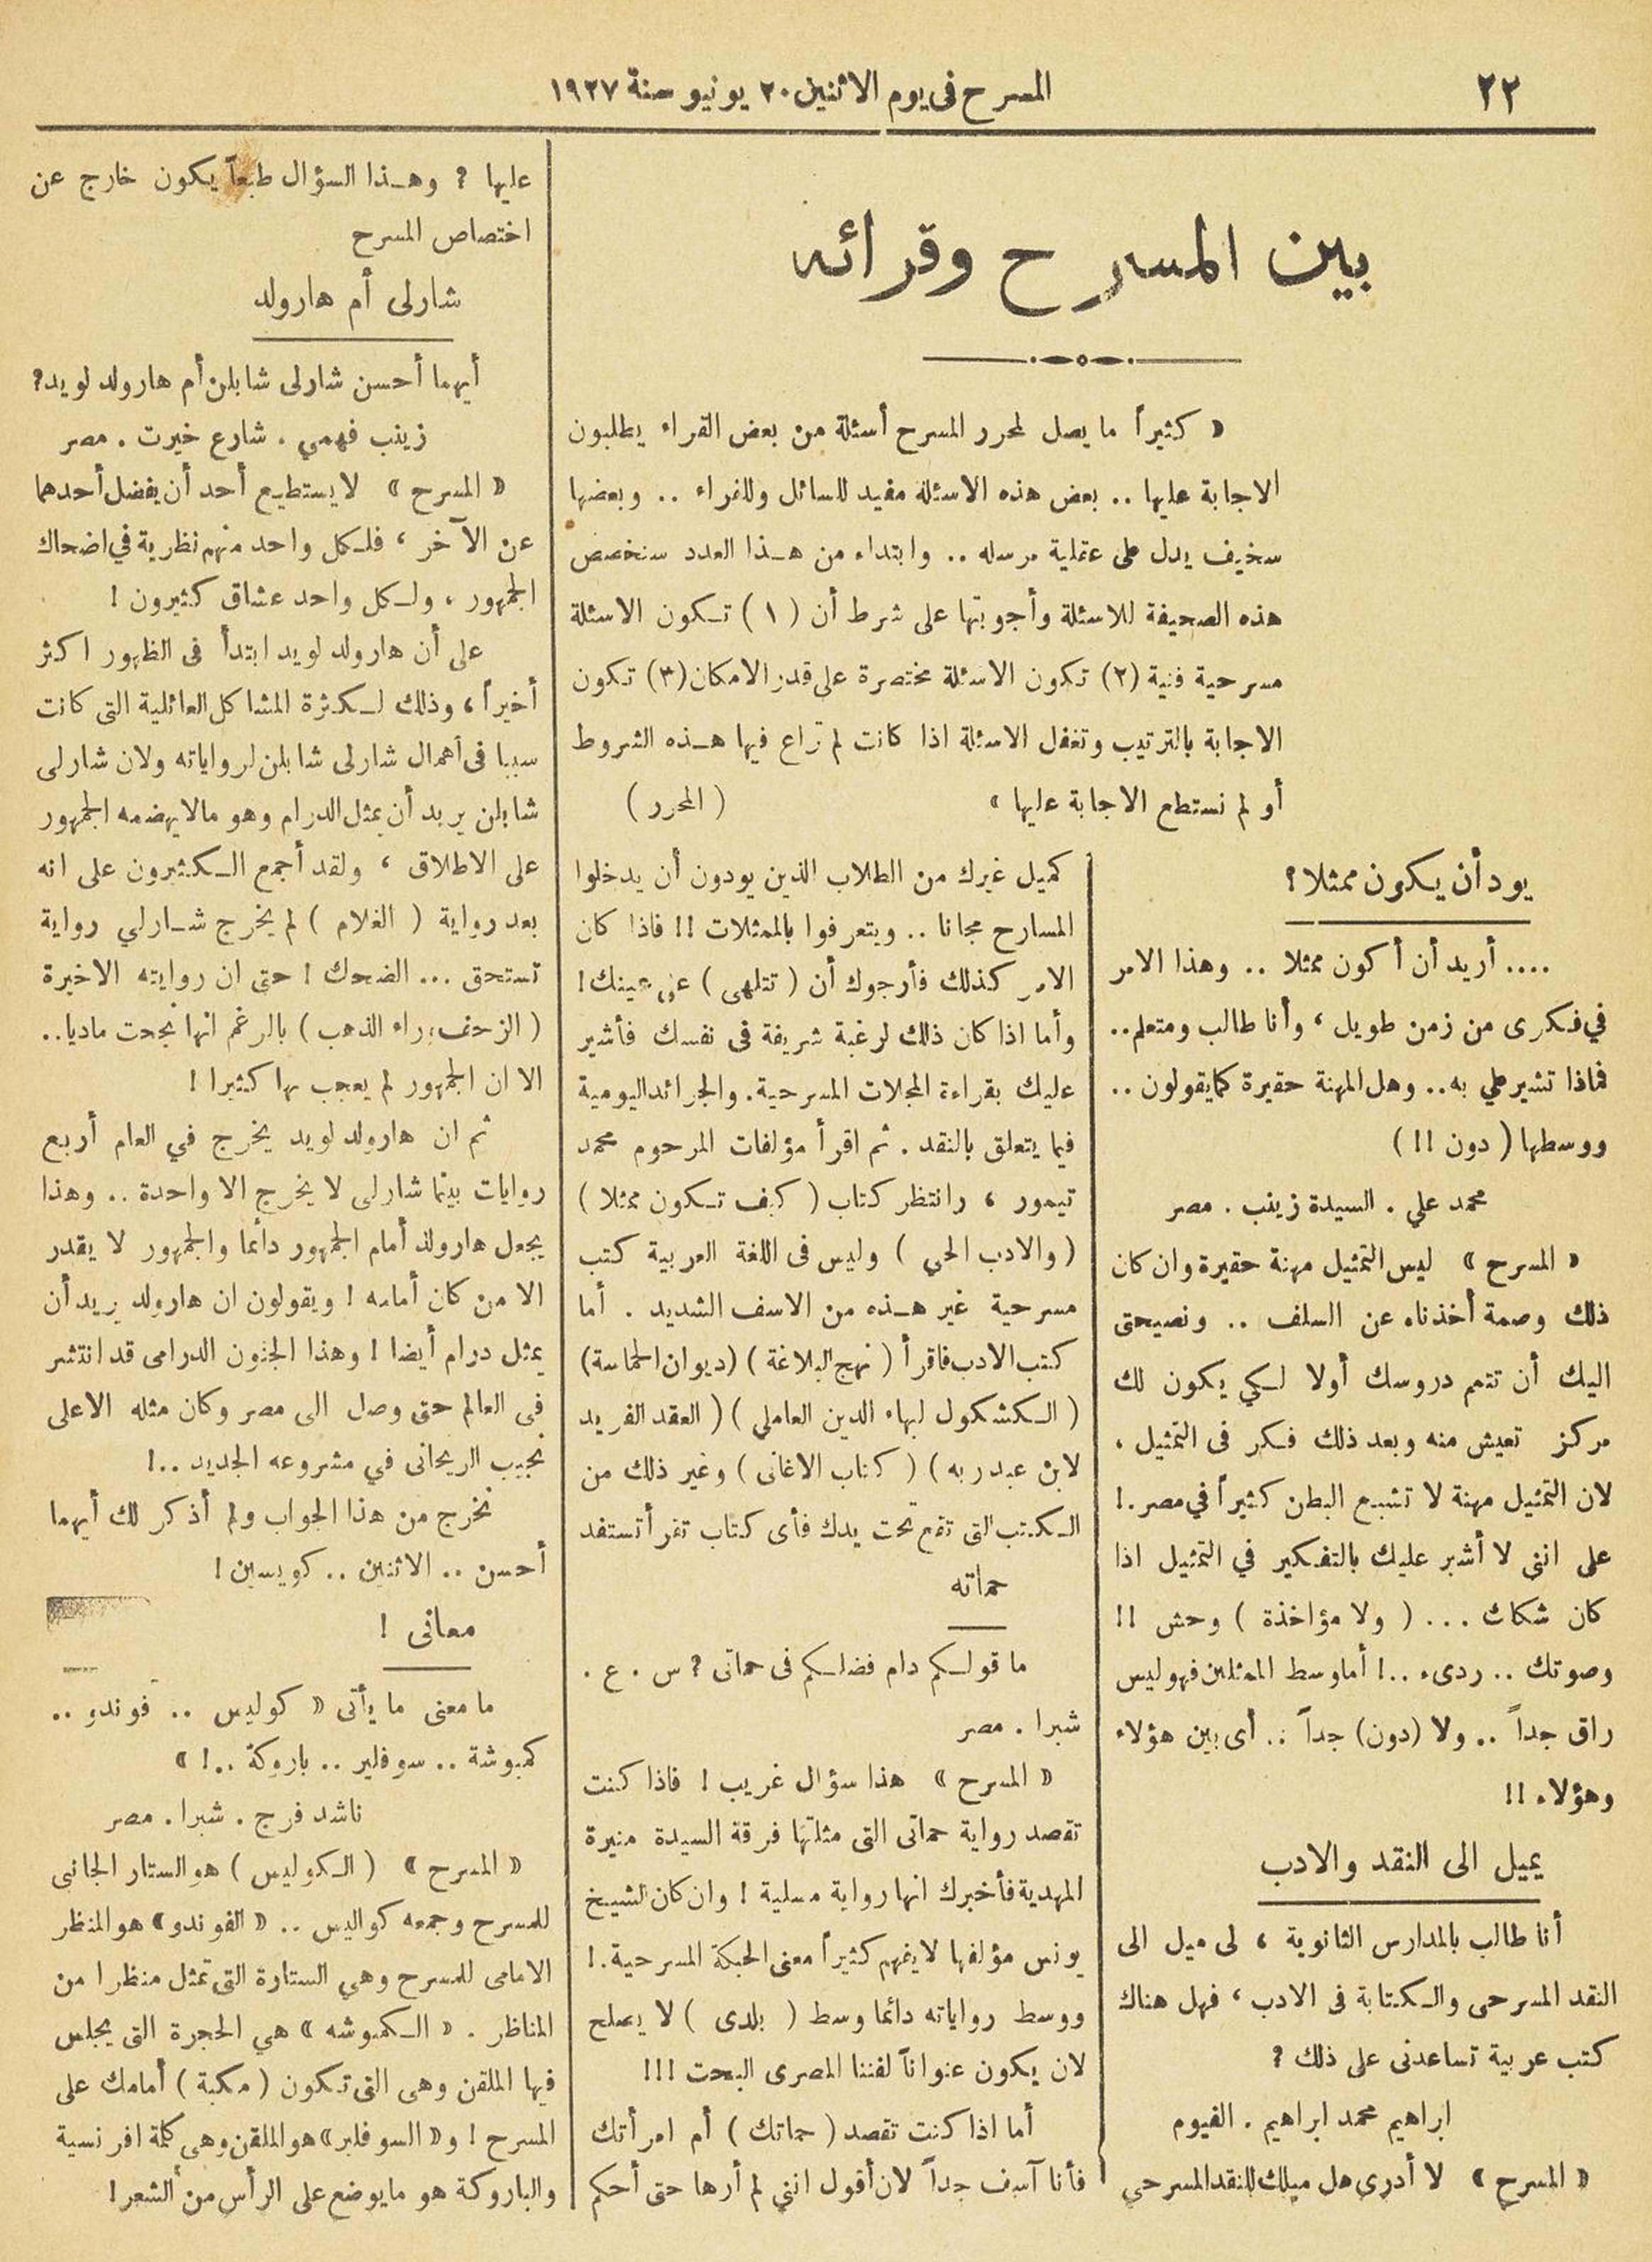 ٢٢
المسرح في يوم الاثنين ٢٠ يونيو سنة ١٩٢٧
بين المسرح وقرائه
« كثيراً ما يصل لمحرر المسرح أسئلة من بعض القراء يطلبون
الاجابة عليها .. بعض هذه الاسئلة مفيد للسائل وللقراء .. وبعضها
سخيف يدل على عقلية مرسله .. وابتداء من هذا العدد سنخصص
هذه الصحيفة للاسئلة وأجوبتها على شرط أن ( ١ ) تكون الاسئلة
مسرحية فنية (٢) تكون الاسئلة مختصرة على قدر الامكان (٣) تكون
الاجابة بالترتيب وتغفل الاسئلة اذا كانت لم تراع فيها هذه الشروط
أو لم نستطع الاجابة عليها » ( المحرر )
يود أن يكون ممثلا ؟
.... أريد أن أكون ممثلا .. وهذا الامر
في فكرى من زمن طويل ، وأنا طالب ومتعلم ..
فماذا تشير علي به .. وهل المهنة حقيرة كما يقولون ..
ووسطها ( دون !! )
محمد علي . السيدة زينب . مصر
« المسرح » ليس التمثيل مهنة حقيرة وان كان
ذلك وصمة أخذناه عن السلف .. ونصيحتى
اليك أن تتمم دروسك أولا لكي يكون لك
مركز تعيش منه وبعد ذلك فكر فى التمثيل ،
لان التمثيل مهنة لا تشبع البطن كثيراً في مصر .!
على اننى لا أشير عليك بالتفكير في التمثيل اذا
كان شكلك ... ( ولا مؤاخذة ) وحش !!
وصوتك .. ردىء ..! أما وسط الممثلين فهو ليس
راق جداً .. ولا (دون) جداً .. أى بين هؤلاء
وهؤلاء !!
يميل الى النقد والادب
أنا طالب بالمدارس الثانوية ، لى ميل الى
النقد المسرحى والكتابة فى الادب ، فهل هناك
كتب عربية تساعدنى على ذلك ?
ابراهيم محمد ابراهيم . الفيوم
« المسرح » لا أدرى هل ميلك للنقد المسرحي
كميل غيرك من الطلاب الذين يودون أن يدخلوا
المسارح مجانا .. ويتعرفوا بالممثلات !! فاذا كان
الامر كذلك فأرجوك أن ( تتلهى ) على عينك !
وأما اذا كان ذلك لرغبة شريفة فى نفسك فأشير
عليك بقراءة المجلات المسرحية . والجرائد اليومية
فيما يتعلق بالنقد . ثم اقرأ مؤلفات المرحوم محمد
تيمور ، وانتظر كتاب ( كيف تكون ممثلا )
( والادب الحي ) وليس فى اللغة العربية كتب
مسرحية غير هذه من الاسف الشديد . أما
كتب الادب فاقرأ ( نهج البلاغة ) (ديوان الحماسة)
( الكشكول لبهاء الدين العاملي ) ( العقد الفريد
لابن عبد ربه ) ( كتاب الاغانى ) وغير ذلك من
الكتب التى تقع تحت يدك فأى كتاب تقرأ تستفد
حماته
ما قولكم دام فضلكم فى حماتى ? س . ع .
شبرا . مصر
« المسرح » هذا سؤال غريب ! فاذا كنت
تقصد رواية حماتى التى مثلتها فرقة السيدة منيرة
المهدية فأخبرك انها رواية مسلية ! وان كان الشيخ
يونس مؤلفها لا يفهم كثيراً معنى الحبكة المسرحية .!
ووسط رواياته دائما وسط ( بلدى ) لا يصلح
لان يكون عنواناً لفننا المصرى البحت !!!
أما اذا كنت تقصد ( حماتك ) أم امرأتك
فأنا آسف جداً لان أقول اننى لم أرها حتى أحكم
عليها ? وهذا السؤال طبعاً يكون خارج عن
اختصاص المسرح
شارلى أم هارولد
أيهما أحسن شارلى شابلن أم هارولد لويد?
زينب فهمي . شارع خيرت . مصر
« المسرح » لا يستطيع أحد أن يفضل أحدهما
عن الآخر ، فلكل واحد منهم نظرية في اضحاك
الجمهور ، ولكل واحد عشاق كثيرون !
على أن هارولد لويد ابتدأ فى الظهور اكثر
أخيراً ، وذلك لكثرة المشاكل العائلية التى كانت
سببا فى أهمال شارلى شابلن لرواياته ولان شارلى
شابلن يريد أن يمثل الدرام وهو مالا يهضمه الجمهور
على الاطلاق ، ولقد أجمع الكثيرون على انه
بعد رواية ( الغلام ) لم يخرج شارلي رواية
تستحق ... الضحك ! حتى ان روايته الاخيرة
( الزحف وراء الذهب ) بالرغم انها نجحت ماديا ..
الا ان الجمهور لم يعجب بها كثيرا !
ثم ان هارولد لويد يخرج في العام أربع
روايات بينما شارلى لا يخرج الا واحدة .. وهذا
يجعل هارولد أمام الجمهور دائما والجمهور لا يقدر
الا من كان أمامه ! ويقولون ان هارولد يريد أن
يمثل درام أيضا ! وهذا الجنون الدرامى قد انتشر
فى العالم حتى وصل الى مصر وكان مثله الاعلى
نجيب الريحانى في مشروعه الجديد ..!
نخرج من هذا الجواب ولم أذكر لك أيهما
أحسن .. الاثنين .. كويسين !
معانى !
ما معنى ما يأتى « كوليس .. فوندو ..
كمبوشة .. سوفلير .. باروكة ..! »
ناشد فرج . شبرا . مصر
« المسرح » ( الكوليس ) هو الستار الجانبى
للمسرح وجمعه كواليس .. « الفوندو » هو المنظر
الامامى للمسرح وهي الستارة التى تمثل منظرا من
المناظر . « الكمبوشه » هي الحجرة التى يجلس
فيها الملقن وهى التى تكون ( مكبة ) أمامك على
المسرح ! و« السوفلير » هو الملقن وهى كلمة افرنسية
والباروكة هو ما يوضع على الرأس من الشعر !